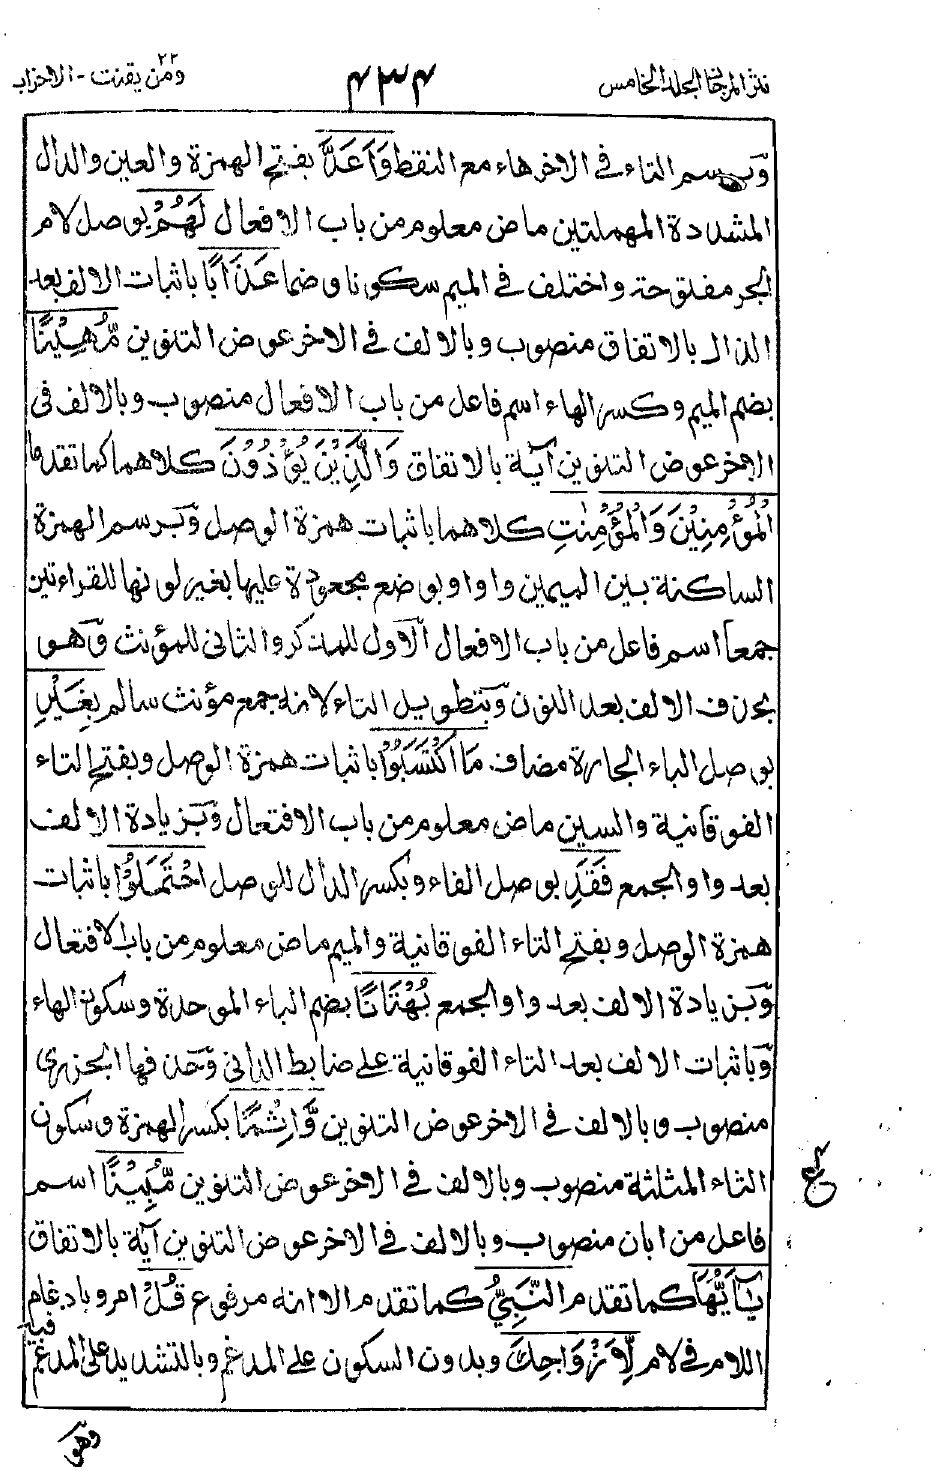 نثر المرجان المجلد الخامس
۴۳۴
ومن يقنت - الاحزاب
٢٢
وَبرسم التاء في الاخر هاء مع النقط وَاَعَدَّ بفتح الهمزة والعين والدال
المشددة المهملتين ماض معلوم من باب الافعال لَهُمْ بوصل لام
الجر مفتوحة واختلف في الميم سكونا وضما عَذَابًا باثبات الالف بعد
الذال بالاتفاق منصوب وبالالف في الاخر عوض التنوين مُّهِيْنًا
بضم الميم وكسر الهاء اسم فاعل من باب الافعال منصوب وبالالف في
الاخر عوض التنوين آية بالاتفاق وَالَّذِيْنَ يُؤْذُوْنَ كلاهما كما تقدما
الْمُؤْمِنِيْنَ وَالْمُؤْمِنٰتِ كلاهما باثبات همزة الوصل وَبرسم الهمزة
الساكنة بين الميمين واوا وبوضع مجعودة عليها بغير لونها للقراءتين
جمعا اسم فاعل من باب الافعال الاول للمذكر والثاني للمؤنث وَهو
بحذف الالف بعد النون وَبتطويل التاء لانه جمع مؤنث سالم بِغَيْرِ
بوصل الباء الجارة مضاف مَا اكْتَسَبُوْا باثبات همزة الوصل وبفتح التاء
الفوقانية والسين ماض معلوم من باب الافتعال وَبزيادة الالف
بعد واو الجمع فَقَدِ بوصل الفاء وبكسر الدال للوصل احْتَمَلُوْا باثبات
همزة الوصل وبفتح التاء الفوقانية والميم ماض معلوم من باب الافتعال
وَبزيادة الالف بعد واو الجمع بُهْتَانًا بضم الباء الموحدة وسكون الهاء
وَباثبات الالف بعد التاء الفوقانية على ضابط الداني وَحذفها الجزري
منصوب وبالالف في الاخر عوض التنوين وَّاِثْمًا بكسر الهمزة وسكون
الثاء المثلثة منصوب وبالالف في الاخر عوض التنوين مُّبِيْنًا اسم
فاعل من ابان منصوب وبالالف في الاخر عوض التنوين آية بالاتفاق
يٰاَيُّهَا كما تقدم النَّبِيُّ كما تقدم الا انه مرفوع قُلْ امر وبادغام
اللام في لام لِّاَزْوَاجِكَ وبدون السكون على المدغم وبالتشديد على المدغم
فيه
ع
وهو